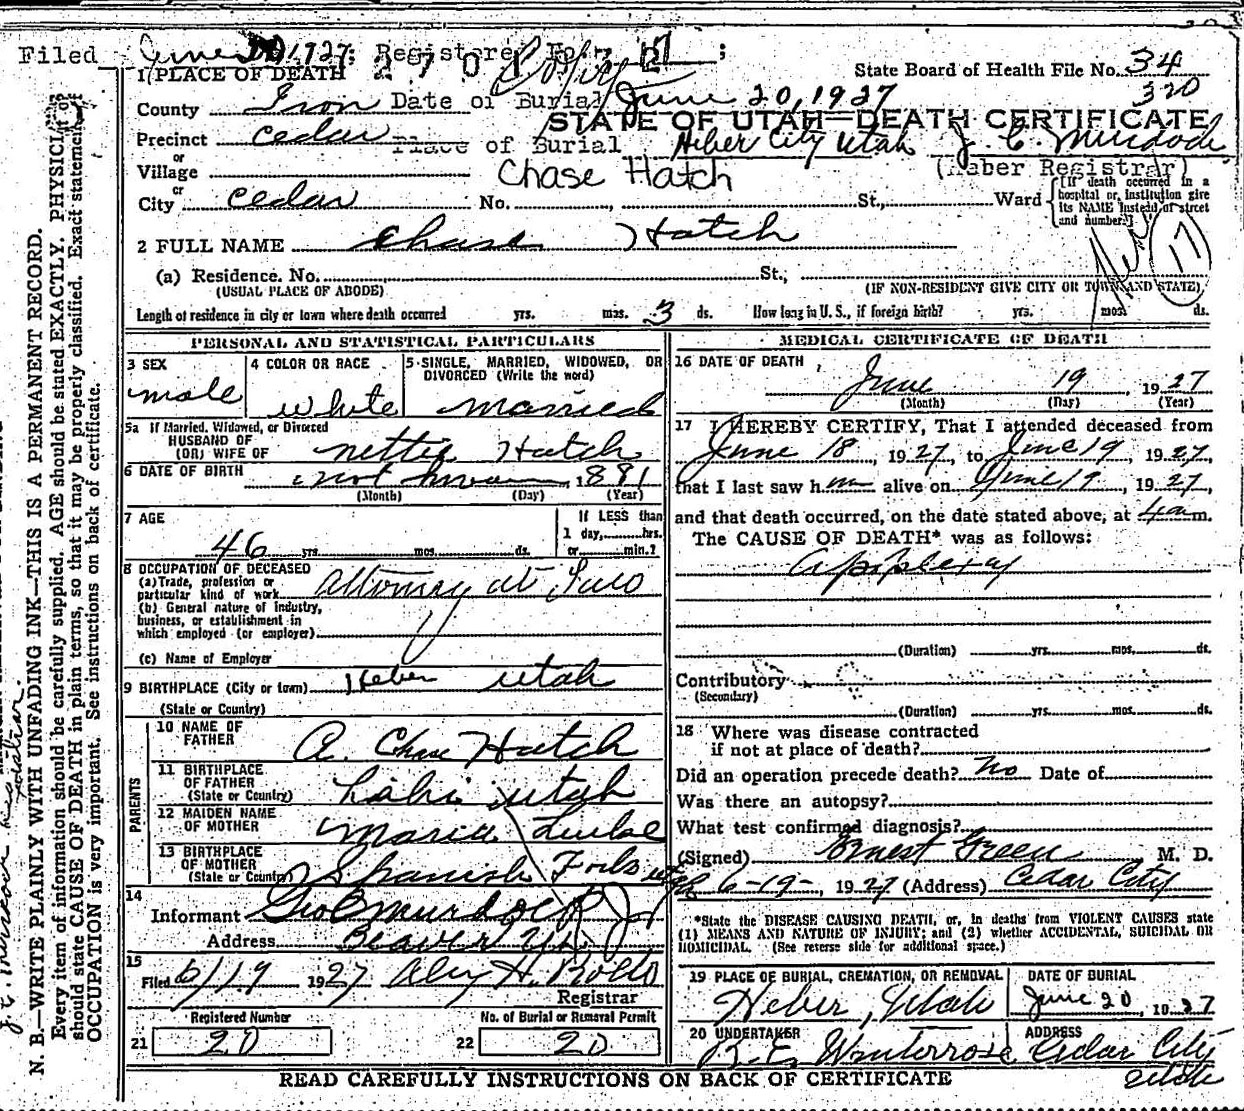 Filed June 20 1927; Registered No. 27
2701 Copy
1 PLACE OF DEATH
State Board of Health File No. 34
320
County Iron Date of Burial June 20, 1927
STATE OF UTAH—DEATH CERTIFICATE
Precinct Cedar Place of Burial Heber City Utah J. C. Murdock
or
Village Chase Hatch (Heber Registrar)
or
City Cedar No. , St., Ward
[If death occurred in a hospital or institution give its NAME instead of street and number.]
17
2 FULL NAME Chase Hatch
(a) Residence. No. St.,
(USUAL PLACE OF ABODE) (IF NON-RESIDENT GIVE CITY OR TOWN AND STATE)
Length of residence in city or town where death occurred yrs. mos. 3 ds. How long in U. S., if foreign birth? yrs. mos. ds.
PERSONAL AND STATISTICAL PARTICULARS
3 SEX 4 COLOR OR RACE 5 SINGLE, MARRIED, WIDOWED, OR
DIVORCED (Write the word)
male white married
5a If Married, Widowed, or Divorced
HUSBAND OF
(OR) WIFE OF Nettie Hatch
6 DATE OF BIRTH not known, 1881
(Month) (Day) (Year)
7 AGE If LESS than
1 day, hrs.
46 yrs. mos. ds. or min.?
8 OCCUPATION OF DECEASED
(a) Trade, profession or
particular kind of work attorney at Law
(b) General nature of industry,
business, or establishment in
which employed (or employer)
(c) Name of Employer
9 BIRTHPLACE (City or town) Heber Utah
(State or Country)
PARENTS
10 NAME OF
FATHER A. Chase Hatch
11 BIRTHPLACE
OF FATHER
(State or Country) Lehi Utah
12 MAIDEN NAME
OF MOTHER Maria
13 BIRTHPLACE
OF MOTHER
(State or Country) Spanish Fork Utah
14
Informant Geo B Murdock Jr
Address Beaver Ut
15
Filed 6/19 1927
Registrar
Registered Number No. of Burial or Removal Permit
21 20 22 20
MEDICAL CERTIFICATE OF DEATH
16 DATE OF DEATH
June 19, 1927
(Month) (Day) (Year)
17 I HEREBY CERTIFY, That I attended deceased from
June 18, 1927, to June 19, 1927,
that I last saw him alive on June 19, 1927,
and that death occurred, on the date stated above, at 4 a m.
The CAUSE OF DEATH* was as follows:
apoplexy
(Duration) yrs. mos. ds.
Contributory
(Secondary)
(Duration) yrs. mos. ds.
18 Where was disease contracted
if not at place of death?
Did an operation precede death? No Date of
Was there an autopsy?
What test confirmed diagnosis?
(Signed) Ernest Green M. D.
6-19-, 1927 (Address) Cedar City
*State the DISEASE CAUSING DEATH, or, in deaths from VIOLENT CAUSES state
(1) MEANS AND NATURE OF INJURY; and (2) whether ACCIDENTAL, SUICIDAL OR
HOMICIDAL. (See reverse side for additional space.)
19 PLACE OF BURIAL, CREMATION, OR REMOVAL DATE OF BURIAL
Heber, Utah June 20, 1927
20 UNDERTAKER ADDRESS
Winterrose Cedar City
Utah
READ CAREFULLY INSTRUCTIONS ON BACK OF CERTIFICATE
N. B.—WRITE PLAINLY WITH UNFADING INK—THIS IS A PERMANENT RECORD.
Every item of information should be carefully supplied. AGE should be stated EXACTLY. PHYSICIANS
should state CAUSE OF DEATH in plain terms, so that it may be properly classified. Exact statement of
OCCUPATION is very important. See instructions on back of certificate.